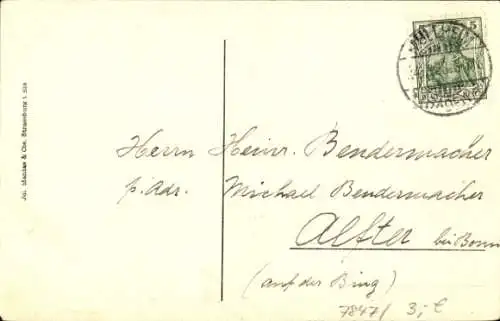 5
Herrn Heinr. Bendermacher
p. Adr. Michael Bendermacher
Alfter bei Bonn
(auf der Bing)
7847/ 3,- €
Jul. Manias & Cie, Strassburg i. Els